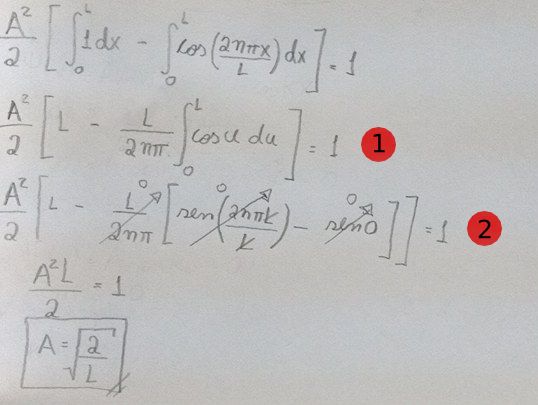 A²/2 [∫₀ᴸ 1dx - ∫₀ᴸ cos(2nπx/L) dx] = 1
A²/2 [L - L/2nπ ∫₀ᴸ cos u du] = 1 1
A²/2 [L - L/2nπ 0 [sen(2nπL/L) 0 - sen0 0]] = 1 2
A²L/2 = 1
A = √(2/L)